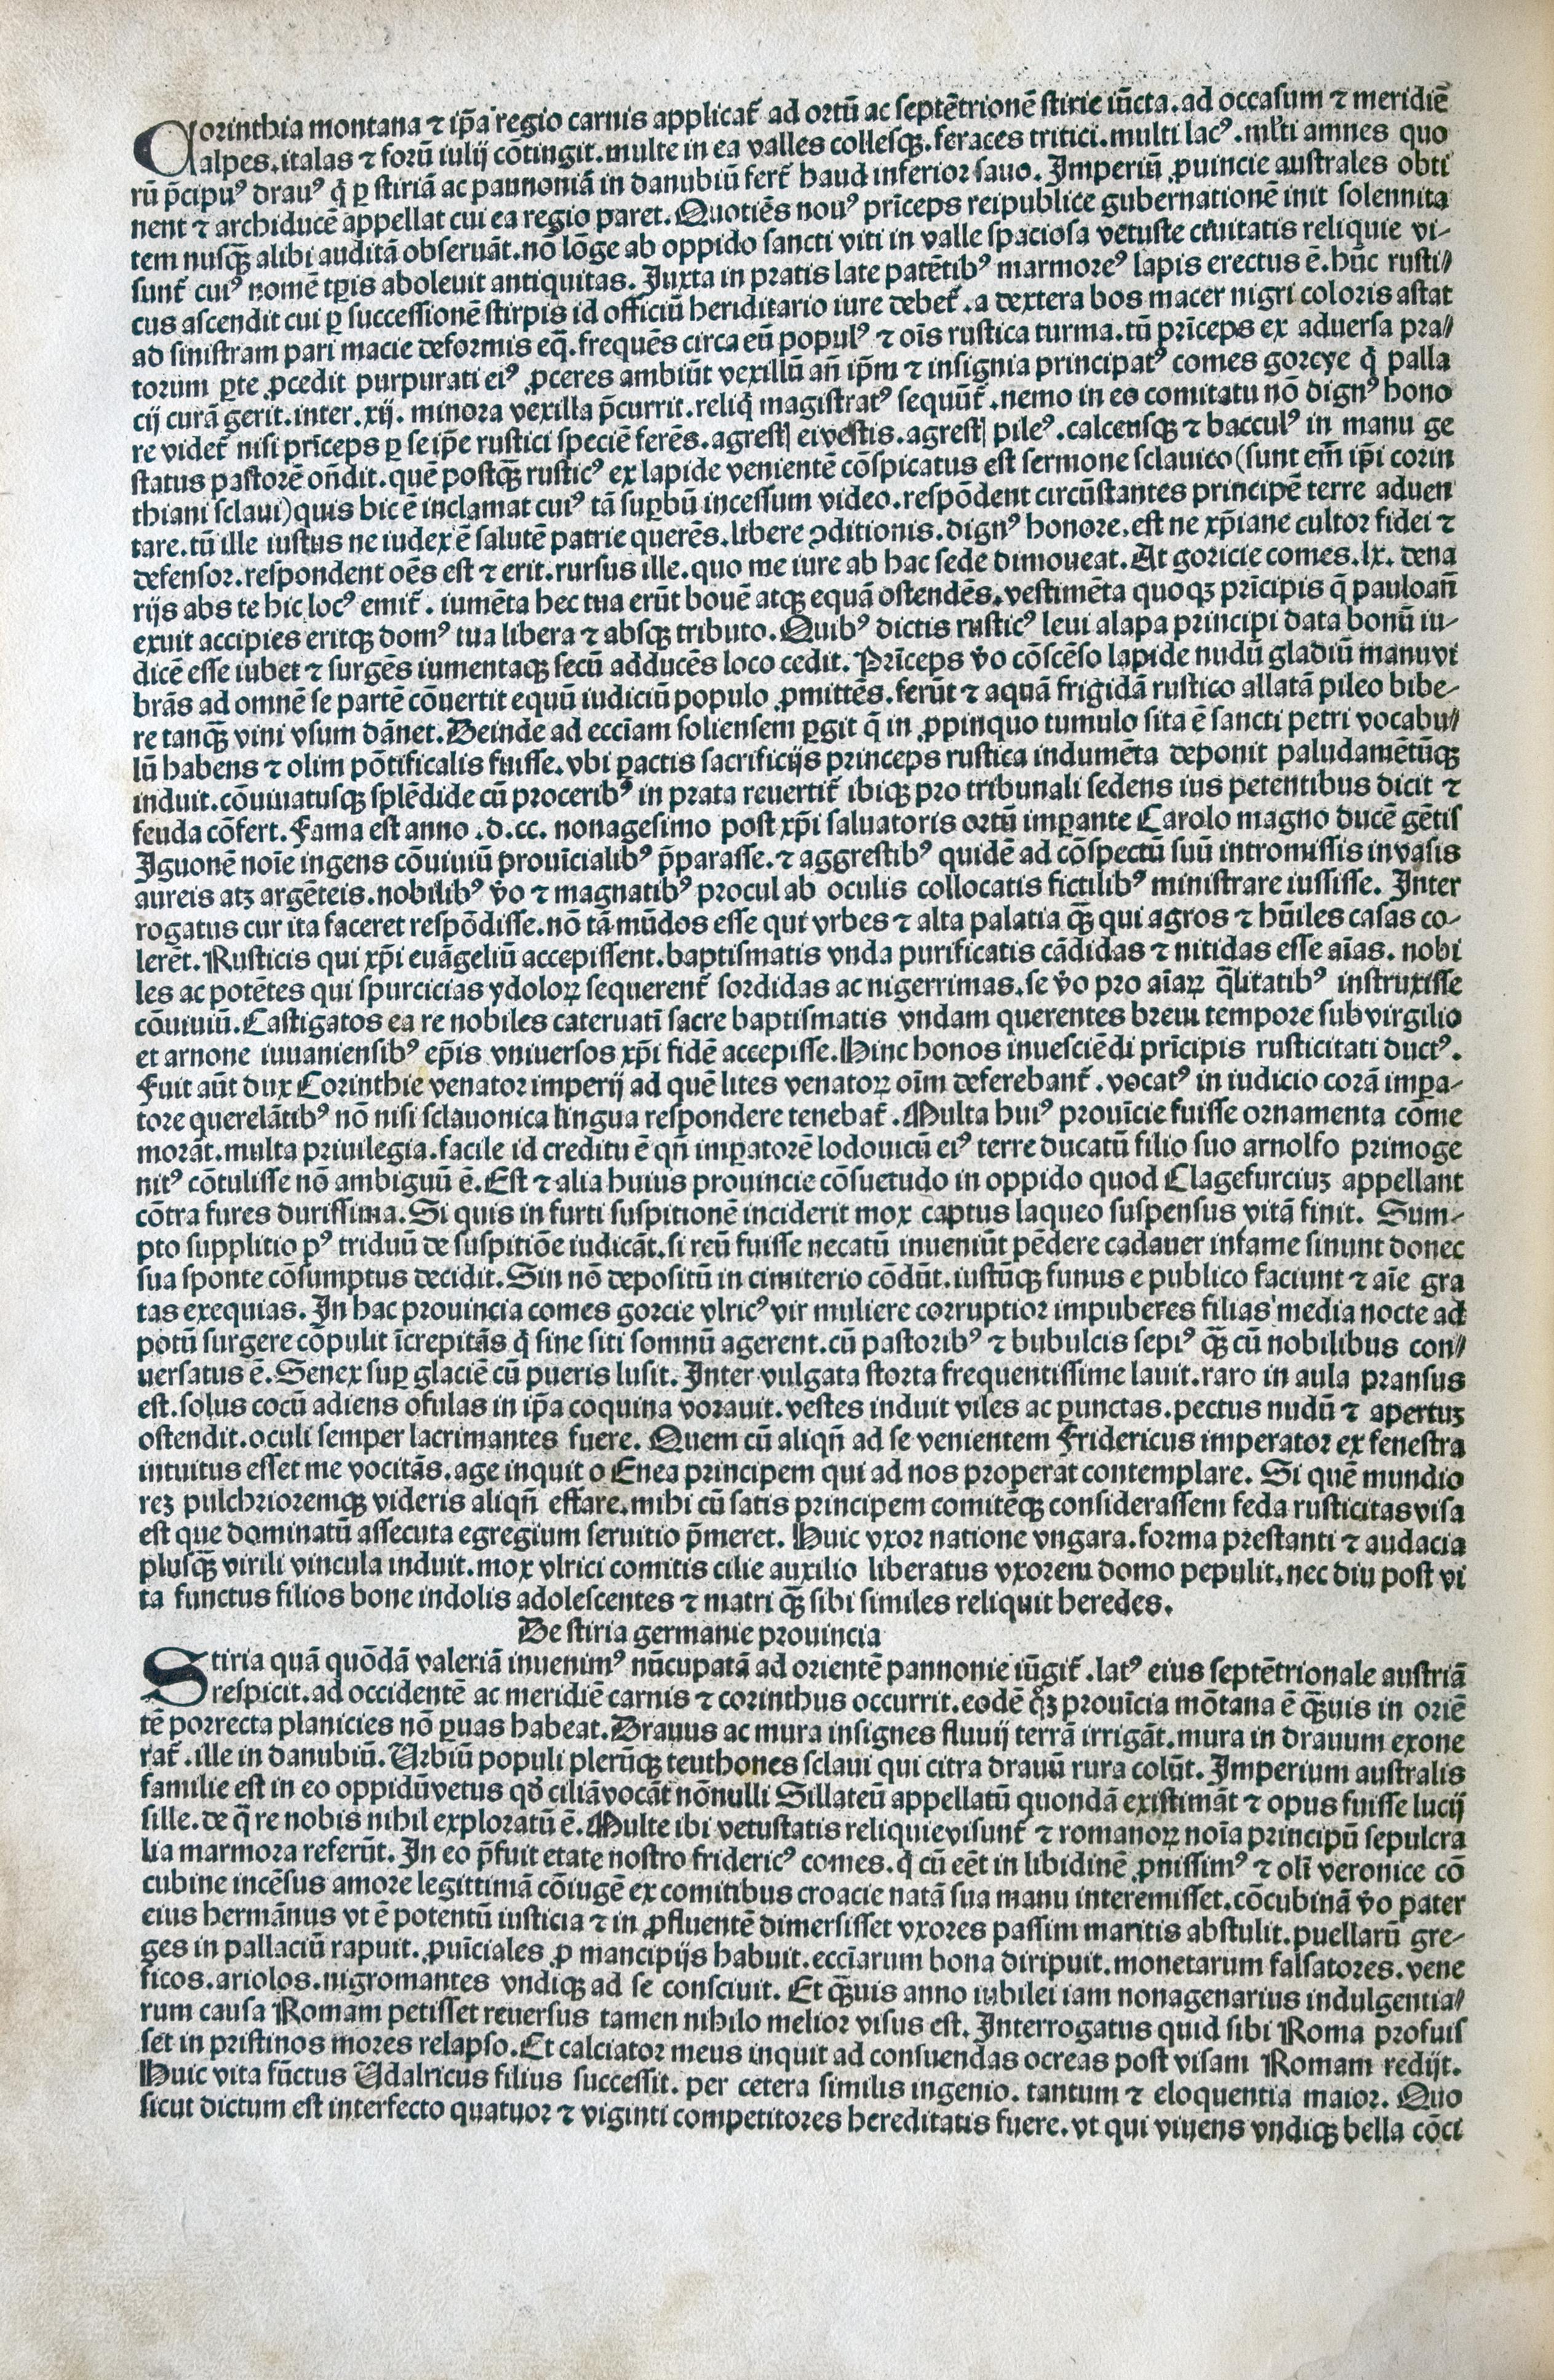 Corinthia montana ⁊ ip̄a regio carnis applicat᷑ ad ortū ac septētrionē stirie iūcta. ad occasum ⁊ meridiē
alpes. italas ⁊ forū iulij cōtingit. multe in ea valles collesqꝫ. feraces tritici. multi lacꝰ. ml̓ti amnes quo
rū p̄cipuꝰ drauꝰ q̇ ꝑ stiriā ac pannoniā in danubiū fert᷑ haud inferior sauo. Imperiū ꝓuincie australes obti
nent ⁊ archiducē appellat cui ea regio paret. Quotiēs nouꝰ prīceps reipublice gubernationē init solennita
tem nusqꝫ̄ alibi auditā obseruāt. nō lōge ab oppido sancti viti in valle spaciosa vetuste ciuitatis reliquie vi-
sunt᷑ cuiꝰ nomē tp̄is aboleuit antiquitas. Juxta in pratis late patētibꝰ marmoreꝰ lapis erectus ē. hūc rusti⸗
cus ascendit cui ꝑ successionē stirpis id officiū heriditario iure debet᷑. a dextera bos macer nigri coloris astat
ad sinistram pari macie deformis eq̄. frequēs circa eū populꝰ ⁊ oīs rustica turma. tū prīceps ex aduersa pra⸗
torum ꝑte ꝓcedit purpurati eiꝰ ꝓceres ambiūt vexillū an̄ ip̄m ⁊ insignia principatꝰ comes gorcye q̇ palla
cij curā gerit. inter. xij. minora vexilla p̄currit. reliq̇ magistratꝰ sequūt᷑. nemo in eo comitatu nō dignꝰ hono
re videt᷑ nisi prīceps ꝑ se ip̄e rustici speciē ferēs. agrestꝭ ei vestis. agrestꝭ pileꝰ. calcensqꝫ ⁊ bacculꝰ in manu ge
status pastorē on̄dit. quē postqꝫ̄ rusticꝰ ex lapide venientē cōspicatus est sermone sclauico (sunt em̄ ip̄i corin
thiani sclaui) quis hic ē inclamat cuiꝰ tā suꝑbū incessum video. respōdent circūstantes principē terre aduen
tare. tū ille iustus ne iudex ē salutē patrie querēs. libere ↄditionis. dignꝰ honore. est ne xp̄iane cultor fidei ⁊
defensor. respondent oēs est ⁊ erit. rursus ille. quo me iure ab hac sede dimoueat. At goricie comes. lx. dena
rijs abs te hic locꝰ emit᷑. iumēta hec tua erūt bouē atqꝫ equā ostendēs. vestimēta quoqꝫ prīcipis q̄ pauloan̄
exuit accipies eritqꝫ domꝰ tua libera ⁊ absqꝫ tributo. Quibꝰ dictis rusticꝰ leui alapa principi data bonū iu-
dicē esse iubet ⁊ surgēs iumentaqꝫ secū adducēs loco cedit. Prīceps v̄o cōscēso lapide nudū gladiū manu vi
brās ad omnē se partē cōuertit equū iudiciū populo ꝓmittēs. ferūt ⁊ aquā frigidā rustico allatā pileo bibe-
re tanqꝫ̄ vini vsum dānet. Deinde ad ecclīam soliensem ꝑgit q̄ in ꝓpinquo tumulo sita ē sancti petri vocabu⸗
lū habens ⁊ olim pōtificalis fuisse. vbi ꝑactis sacrificijs princeps rustica indumēta deponit paludamētūqꝫ
induit. cōuiuatusqꝫ splēdide cū proceribꝰ in prata reuertit᷑ ibiqꝫ pro tribunali sedens ius petentibus dicit ⁊
feuda cōfert. Fama est anno .d.cc. nonagesimo post xp̄i saluatoris ortū imꝑante Carolo magno ducē gētis
Iguonē noīe ingens cōuiuiū prouīcialibꝰ p̄parasse. ⁊ aggrestibꝰ quidē ad cōspectū suū intromissis in vasis
aureis atꝫ argēteis. nobilibꝰ v̄o ⁊ magnatibꝰ procul ab oculis collocatis fictilibꝰ ministrare iussisse. Inter
rogatus cur ita faceret respōdisse. nō tā mūdos esse qui vrbes ⁊ alta palatia qꝫ̄ qui agros ⁊ hūiles casas co-
lerēt. Rusticis qui xp̄i euāgeliū accepissent. baptismatis vnda purificatis cādidas ⁊ nitidas esse aīas. nobi
les ac potētes qui spurcicias ydoloꝝ sequerent᷑ sordidas ac nigerrimas. se v̄o pro aīaꝝ q̄litatibꝰ instruxisse
cōuiuiū. Castigatos ea re nobiles cateruatī sacre baptismatis vndam querentes breui tempore sub virgilio
et arnone iuuaniensibꝰ ep̄is vniuersos xp̄i fidē accepisse. Hinc honos inuesciēdi prīcipis rusticitati ductꝰ.
Fuit aūt dux Corinthie venator imperij ad quē lites venatoꝝ oīm deferebant᷑. vocatꝰ in iudicio corā imꝑa-
tore querelātibꝰ nō nisi sclauonica lingua respondere tenebat᷑. Multa huiꝰ prouīcie fuisse ornamenta cōme
morāt. multa priuilegia. facile id creditu ē qn̄ imꝑatorē lodouicū eiꝰ terre ducatū filio suo arnolfo primoge
nitꝰ cōtulisse nō ambiguū ē. Est ⁊ alia huius prouincie cōsuetudo in oppido quod Clagefurciuꝫ appellant
cōtra fures durissima. Si quis in furti suspitionē inciderit mox captus laqueo suspensus vitā finit. Sum-
pto supplitio pꝰ triduū de suspitiōe iudicāt. si reū fuisse necatū inueniūt pēdere cadauer infame sinunt donec
sua sponte cōsumptus decidit. Sin nō depositū in cimiterio cōdūt. iustūqꝫ funus e publico faciunt ⁊ aīe gra
tas exequias. In hac prouincia comes gorcie vlricꝰ vir muliere corruptior impuberes filias media nocte ad
potū surgere cōpulit īcrepitās q̇ sine siti somnū agerent. cū pastoribꝰ ⁊ bubulcis sepiꝰ qꝫ̄ cū nobilibus con⸗
uersatus ē. Senex suꝑ glaciē cū pueris lusit. Inter vulgata storta frequentissime lauit. raro in aula pransus
est. solus cocū adiens ofulas in ip̄a coquina vorauit. vestes induit viles ac ꝑunctas. pectus nudū ⁊ apertuꝫ
ostendit. oculi semper lacrimantes fuere. Quem cū aliqn̄ ad se venientem Fridericus imperator ex fenestra
intuitus esset me vocitās. age inquit o Enea principem qui ad nos properat contemplare. Si quē mundio
reꝫ pulchrioremqꝫ videris aliqn̄ effare. mihi cū satis principem comitēqꝫ considerassem feda rusticitas visa
est que dominatū assecuta egregium seruitio p̄meret. Huic vxor natione vngara. forma prestanti ⁊ audacia
plusqꝫ̄ virili vincula induit. mox vlrici comitis cilie auxilio liberatus vxorem domo pepulit. nec diu post vi
ta functus filios bone indolis adolescentes ⁊ matri qꝫ̄ sibi similes reliquit heredes.
De stiria germanie prouincia
Stiria quā quōdā valeriā inuenimꝰ nūcupatā ad orientē pannonie iūgit᷑. latꝰ eius septētrionale austriā
respicit. ad occidentē ac meridiē carnis ⁊ corinthus occurrit. eodē q̇ꝫ prouīcia mōtana ē qꝫ̄uis in oriē
tē porrecta planicies nō ꝑuas habeat. Drauus ac mura insignes fluuij terrā irrigāt. mura in drauum exone
rat᷑. ille in danubiū. Urbiū populi plerūqꝫ teuthones sclaui qui citra drauū rura colūt. Imperium australis
familie est in eo oppidū vetus qd̄ ciliā vocāt nōnulli Sillateū appellatū quondā existimāt ⁊ opus fuisse lucij
sille. de q̄ re nobis nihil exploratū ē. Multe ibi vetustatis reliquie visunt᷑ ⁊ romanoꝝ noīa principū sepulcra
lia marmora referūt. In eo p̄fuit etate nostro fridericꝰ comes. q̇ cū eēt in libidinē ꝓnissimꝰ ⁊ olī veronice cō
cubine incēsus amore legittimā cōiugē ex comitibus croacie natā sua manu interemisset. cōcubinā v̄o pater
eius hermānus vt ē potentū iusticia ⁊ in ꝓfluentē dimersisset vxores passim maritis abstulit. puellarū gre-
ges in pallaciū rapuit. ꝓuīciales ꝓ mancipijs habuit. ecclīarum bona diripuit. monetarum falsatores. vene
ficos. ariolos. nigromantes vndiqꝫ ad se consciuit. Et qꝫ̄uis anno iubilei iam nonagenarius indulgentia⸗
rum causa Romam petisset reuersus tamen nihilo melior visus est. Interrogatus quid sibi Roma profuis
set in pristinos mores relapso. Et calciator meus inquit ad consuendas ocreas post visam Romam redijt.
Huic vita fūctus Udalricus filius successit. per cetera similis ingenio. tantum ⁊ eloquentia maior. Quo
sicut dictum est interfecto quatuor ⁊ viginti competitores hereditatis fuere. vt qui viuens vndiqꝫ bella cōci